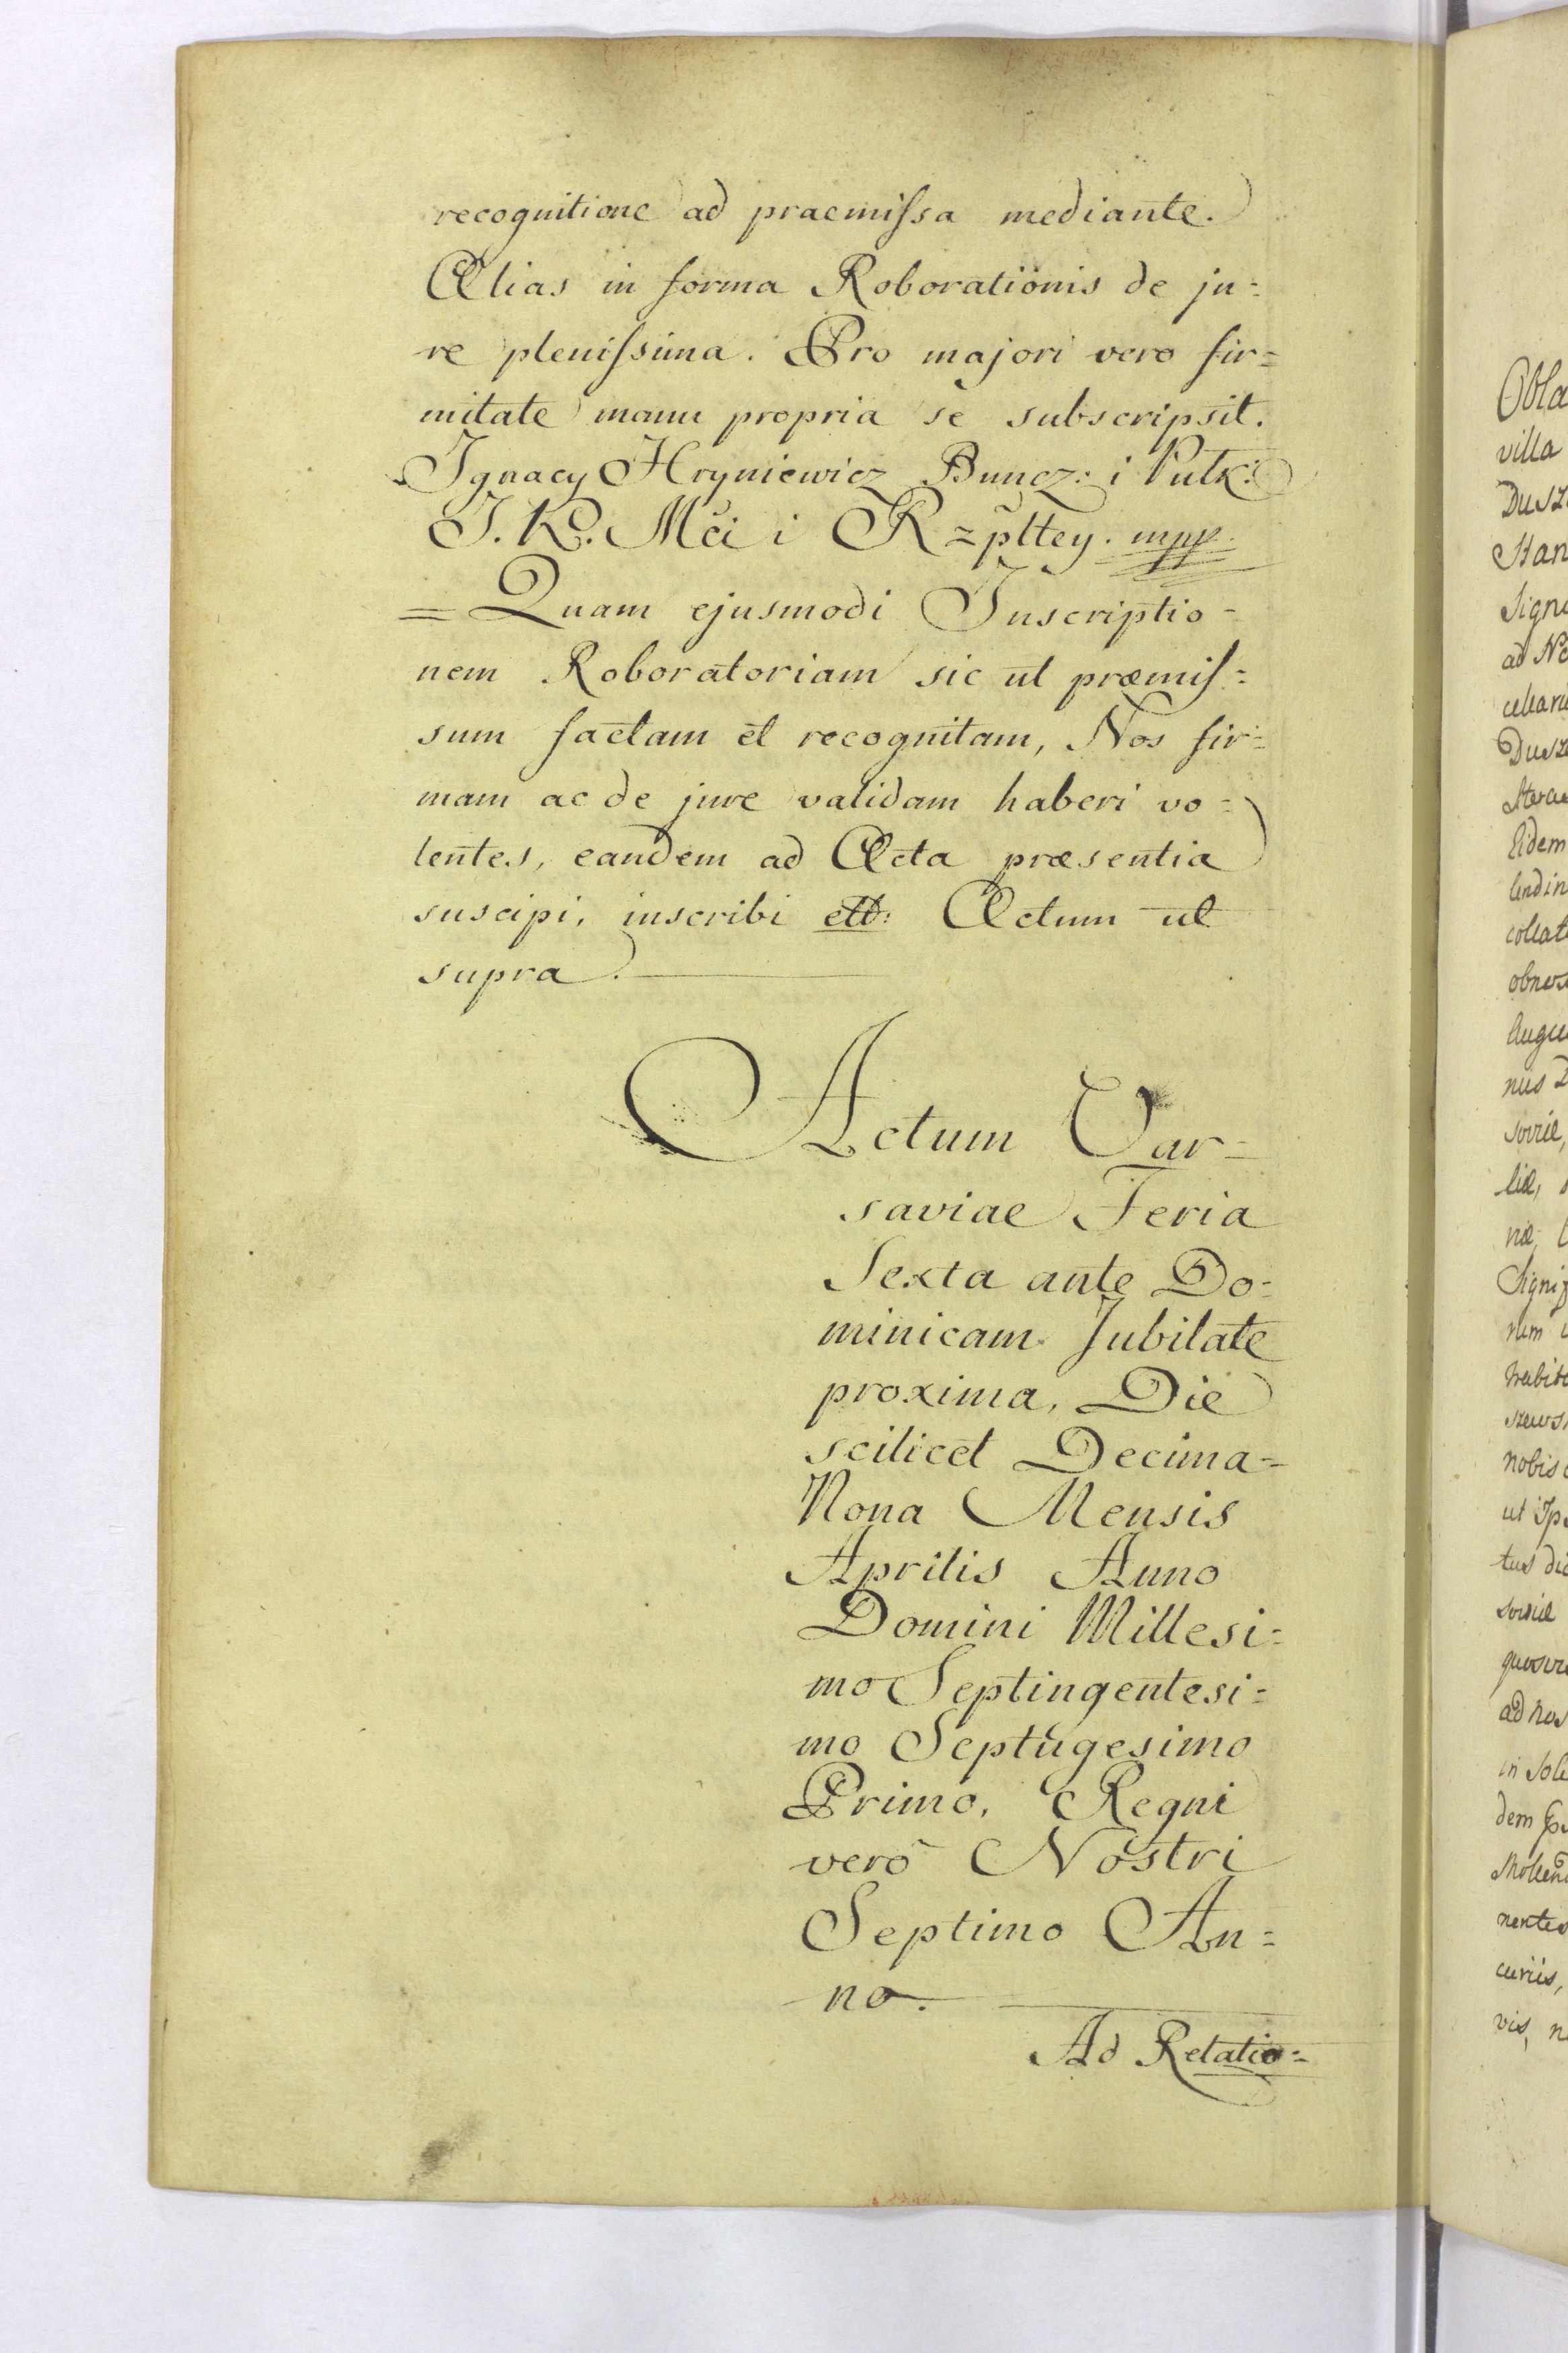 recognitione ad praemiſsa mediante.
Alias in forma Roborationis de ju=
re pleniſsima. Pro majori vero fir=
mitate manu propria se subscripsit.
Ignacy Hryniewicz Buncz: i Pułk:
J. K. Mći i Rzpltey. mpp.
= Quam ejusmodi Inscriptio=
nem Roboratoriam sic ut præmiſ=
sum factam et recognitam, Nos fir=
mam ac de jure validam haberi vo=
lentes, eandem ad Acta præsentia
suscipi, inscribi ett: Actum ut
supra.
Actum Var=
saviae Feria
Sexta ante Do=
minicam Jubilate
proxima, Die
scilicet Decima=
Nona Mensis
Aprilis Anno
Domini Millesi=
mo Septingentesi=
mo Septugesimo
Primo, Regni
vero Nostri
Septimo An=
no.
Ad Relatio=
Obla
villa
Dusz
Stan
Signa
ad No
Dusz
Eidem
collat
Augu
nus D
liæ,
næ,
nobis
ut Ips
tus dic
ad nos
in Sol
nentes
curiis,
vis, n